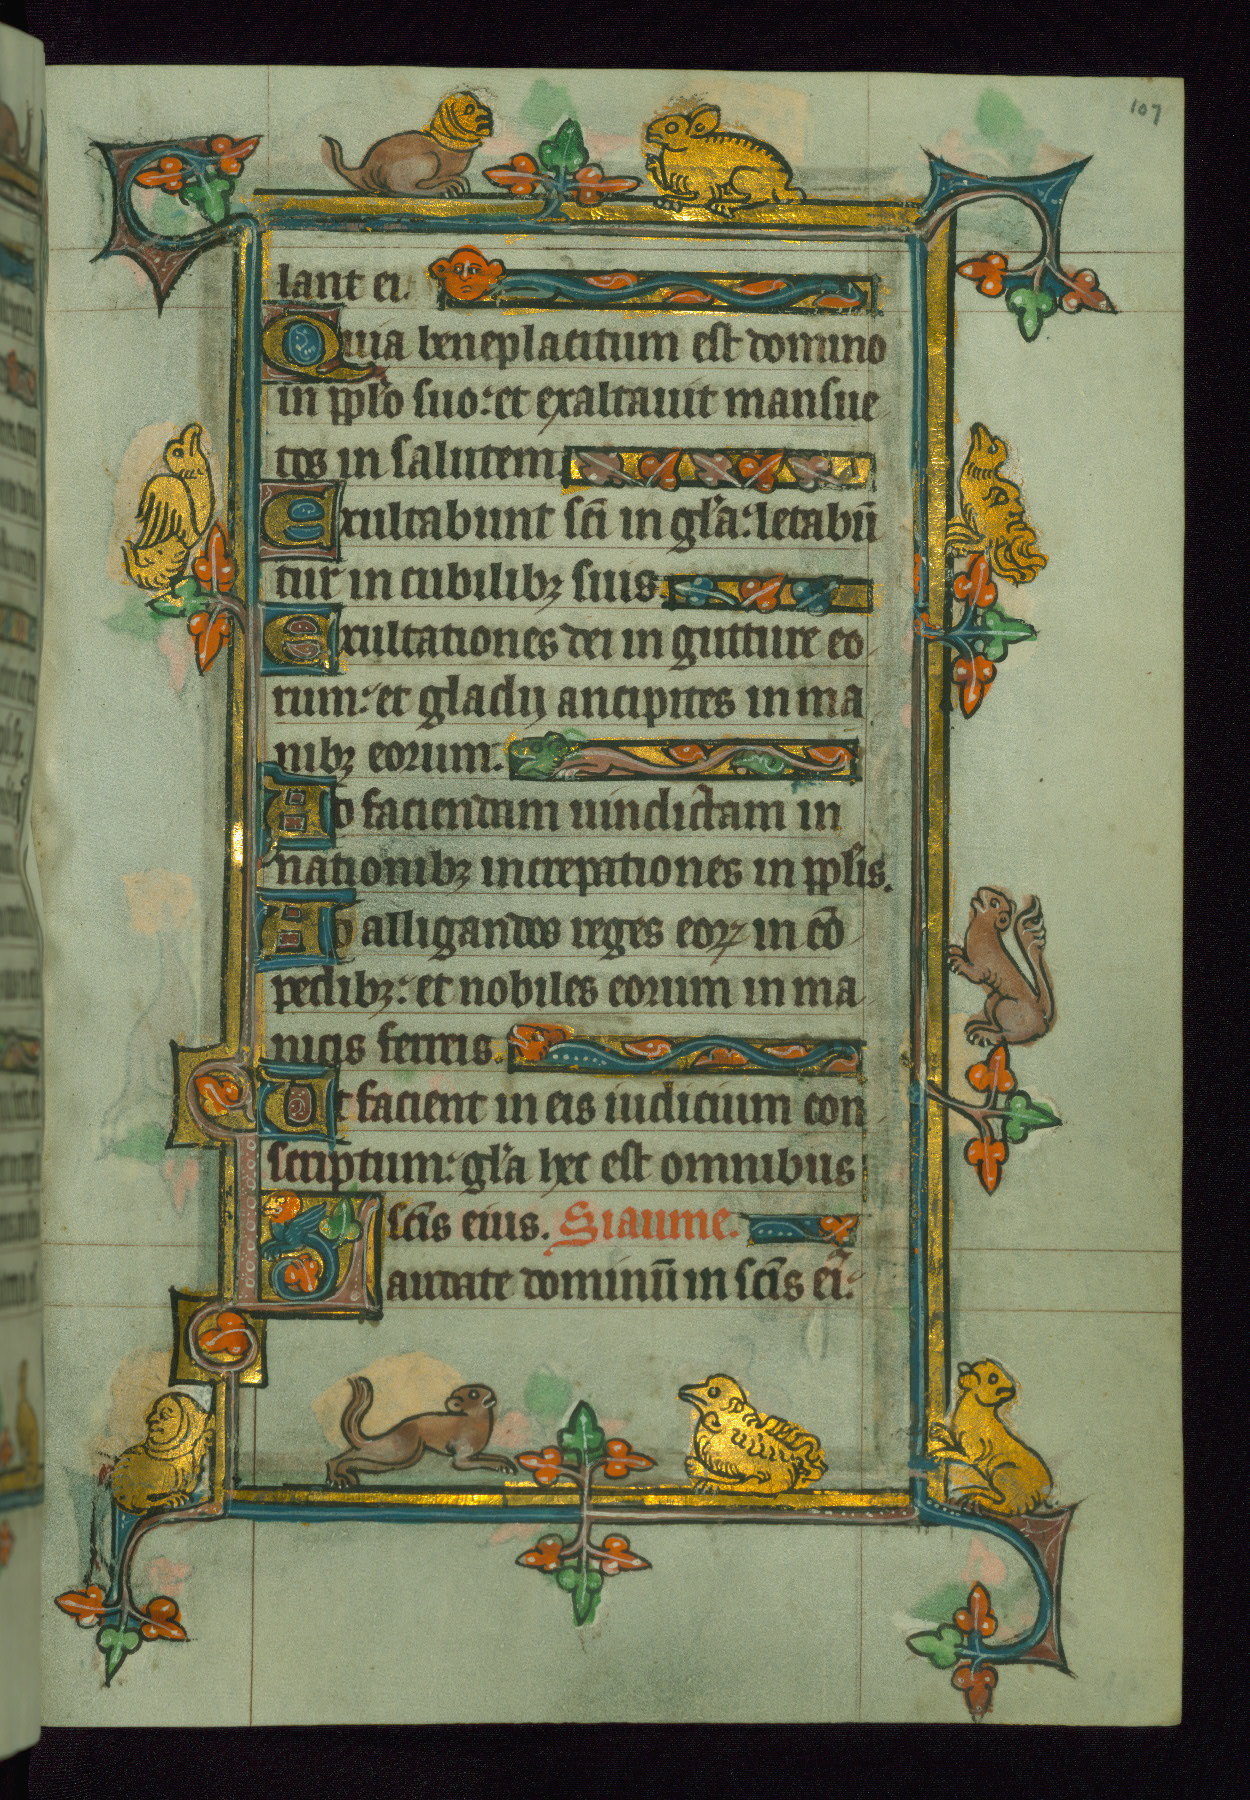 107
lant ei.
Quia beneplacitum est domino
in pplo suo: et exaltauit mansue
tos in salutem.
Exultabunt sci in gla: letabū
tur in cubilibꝫ suis
Exultationes dei in gutture eo
rum: et gladij ancipites in ma
nibꝫ eorum:
Ad faciendam uindictam in
nationibꝫ increpationes in pplis.
Ad alligandos reges eoꝝ in cō
pedibꝫ: et nobiles eorum in ma
nicis ferreis.
Ut facient in eis iudicium con
scriptum: gla hec est omnibus
scis eius. Siaume.
Laudate dominū in scis ei: